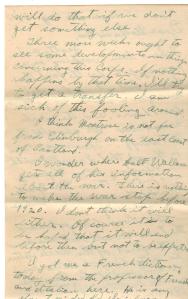 will do that if we don't
get something else
Three more weeks ought to
see some developments in things
concerning this Corps. If nothing
happens by that time, I'll try
to get a transfer. I am
sick of this fooling around
I think Montrose is not far
from Edinburgh on the east coast
of Scotland.
I wonder where Walt
gets all of his information
about the war. This is
to make the war stop before
1920. I don't think it will
either. Of course it is
that it will end
before then but not to expect
I got me a French dictionary
today from the professor of French
and Italian here. He is any